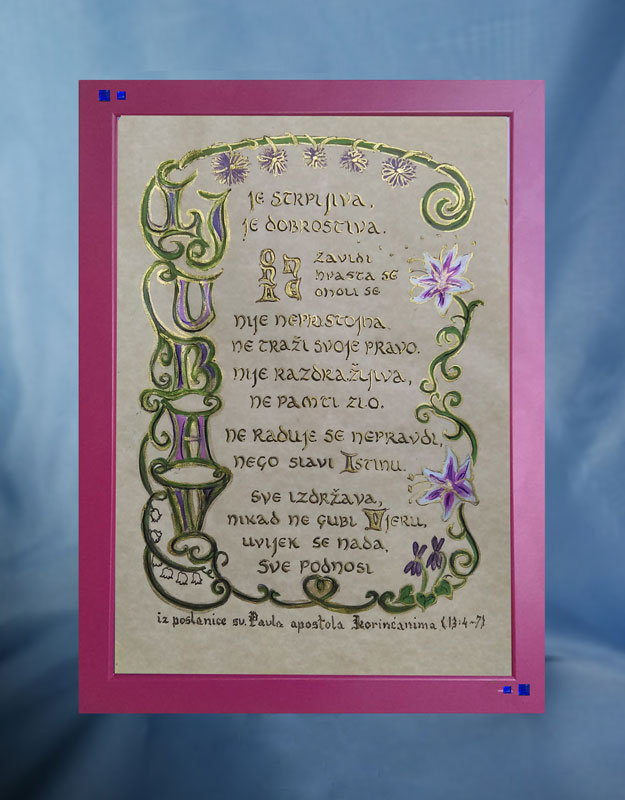 LJUBAV
je strpljiva,
je dobrostiva.
ONA NE
zavidi
hvasta se
oholi se
nije nepristojna,
ne traži svoje pravo.
nije razdražljiva,
ne pamti zlo.
ne raduje se nepravdi,
nego slavi Istinu.
sve izdržava,
nikad ne gubi Vjeru,
uvijek se nada,
sve podnosi
iz poslanice sv. Pavla apostola Korinćanima (13:4-7)